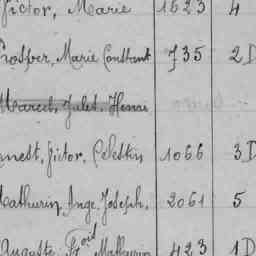 Victor, Marie 1623 4
Prosper, Marie Constant 735 2D
Marcel, Jules, Henri
Ernest, Victor, Célestin 1066 3D
Mathurin, Ange, Joseph, 2061 5
Auguste, Mathurin 423 1D